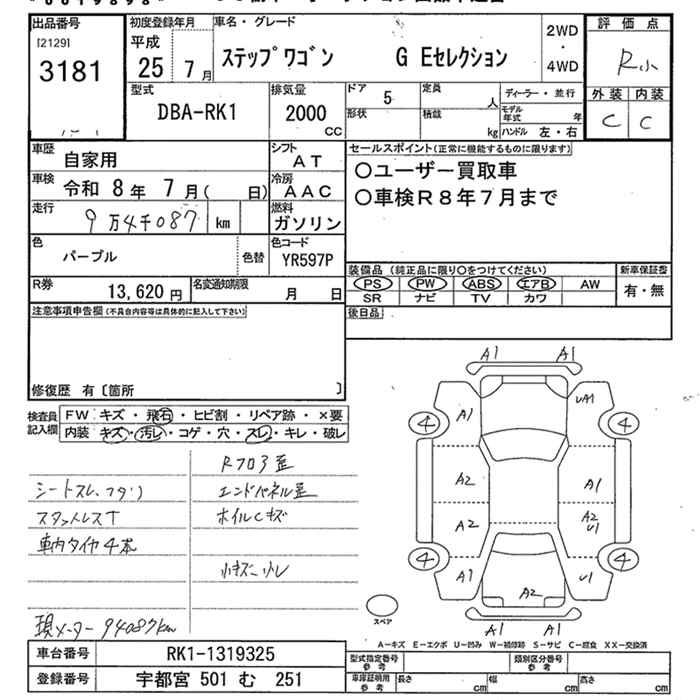 出品番号
[2129]
3181
初度登録年月
平成
25 7月
車名・グレード
ステップワゴン G Eセレクション
2WD
・
4WD
評価点
R小
外装 内装
C C
型式
DBA-RK1
排気量
2000
CC
ドア
5
形状
定員
人
積載
kg
ディーラー・並行
モデル年式 年
ハンドル 左・右
車歴
自家用
シフト
AT
車検
令和 8年 7月( 日)
冷房
AAC
走行
9万4千087 km
燃料
ガソリン
色
パープル
色替
色コード
YR597P
R券
13,620円
名変通知期限
月 日
セールスポイント(正常に機能するものに限ります)
○ユーザー買取車
○車検R8年7月まで
装備品 (純正品に限り○をつけてください)
PS PW ABS エアB AW
SR ナビ TV カワ
新車保証書
有・無
後日品
注意事項申告欄(不具合内容等は具体的に記入して下さい)
修復歴 有〔箇所 〕
検査員記入欄
FW キズ・飛石・ヒビ割・リペア跡・×要
内装 キズ・汚レ・コゲ・穴・スレ・キレ・破レ
Rフロア歪
シートスレ、フタリ
エンドパネル歪
スタットレス↑
ホイルCキズ
車内タイヤ4本
小キズ、凹
現メーター 94087km
A1 A1
A1 uA1
4 4
A2 A1
A2 A2 u1
4 4
A1 u1
A2
A1 A1
スペア
A－キズ E－エクボ U－凹み W－補修跡 S－サビ C－腐食 XX－交換済
車台番号
RK1-1319325
登録番号
宇都宮 501 む 251
型式指定番号
参考
類別区分番号
参考
車庫証明用
参考
長さ cm
幅 cm
高さ cm